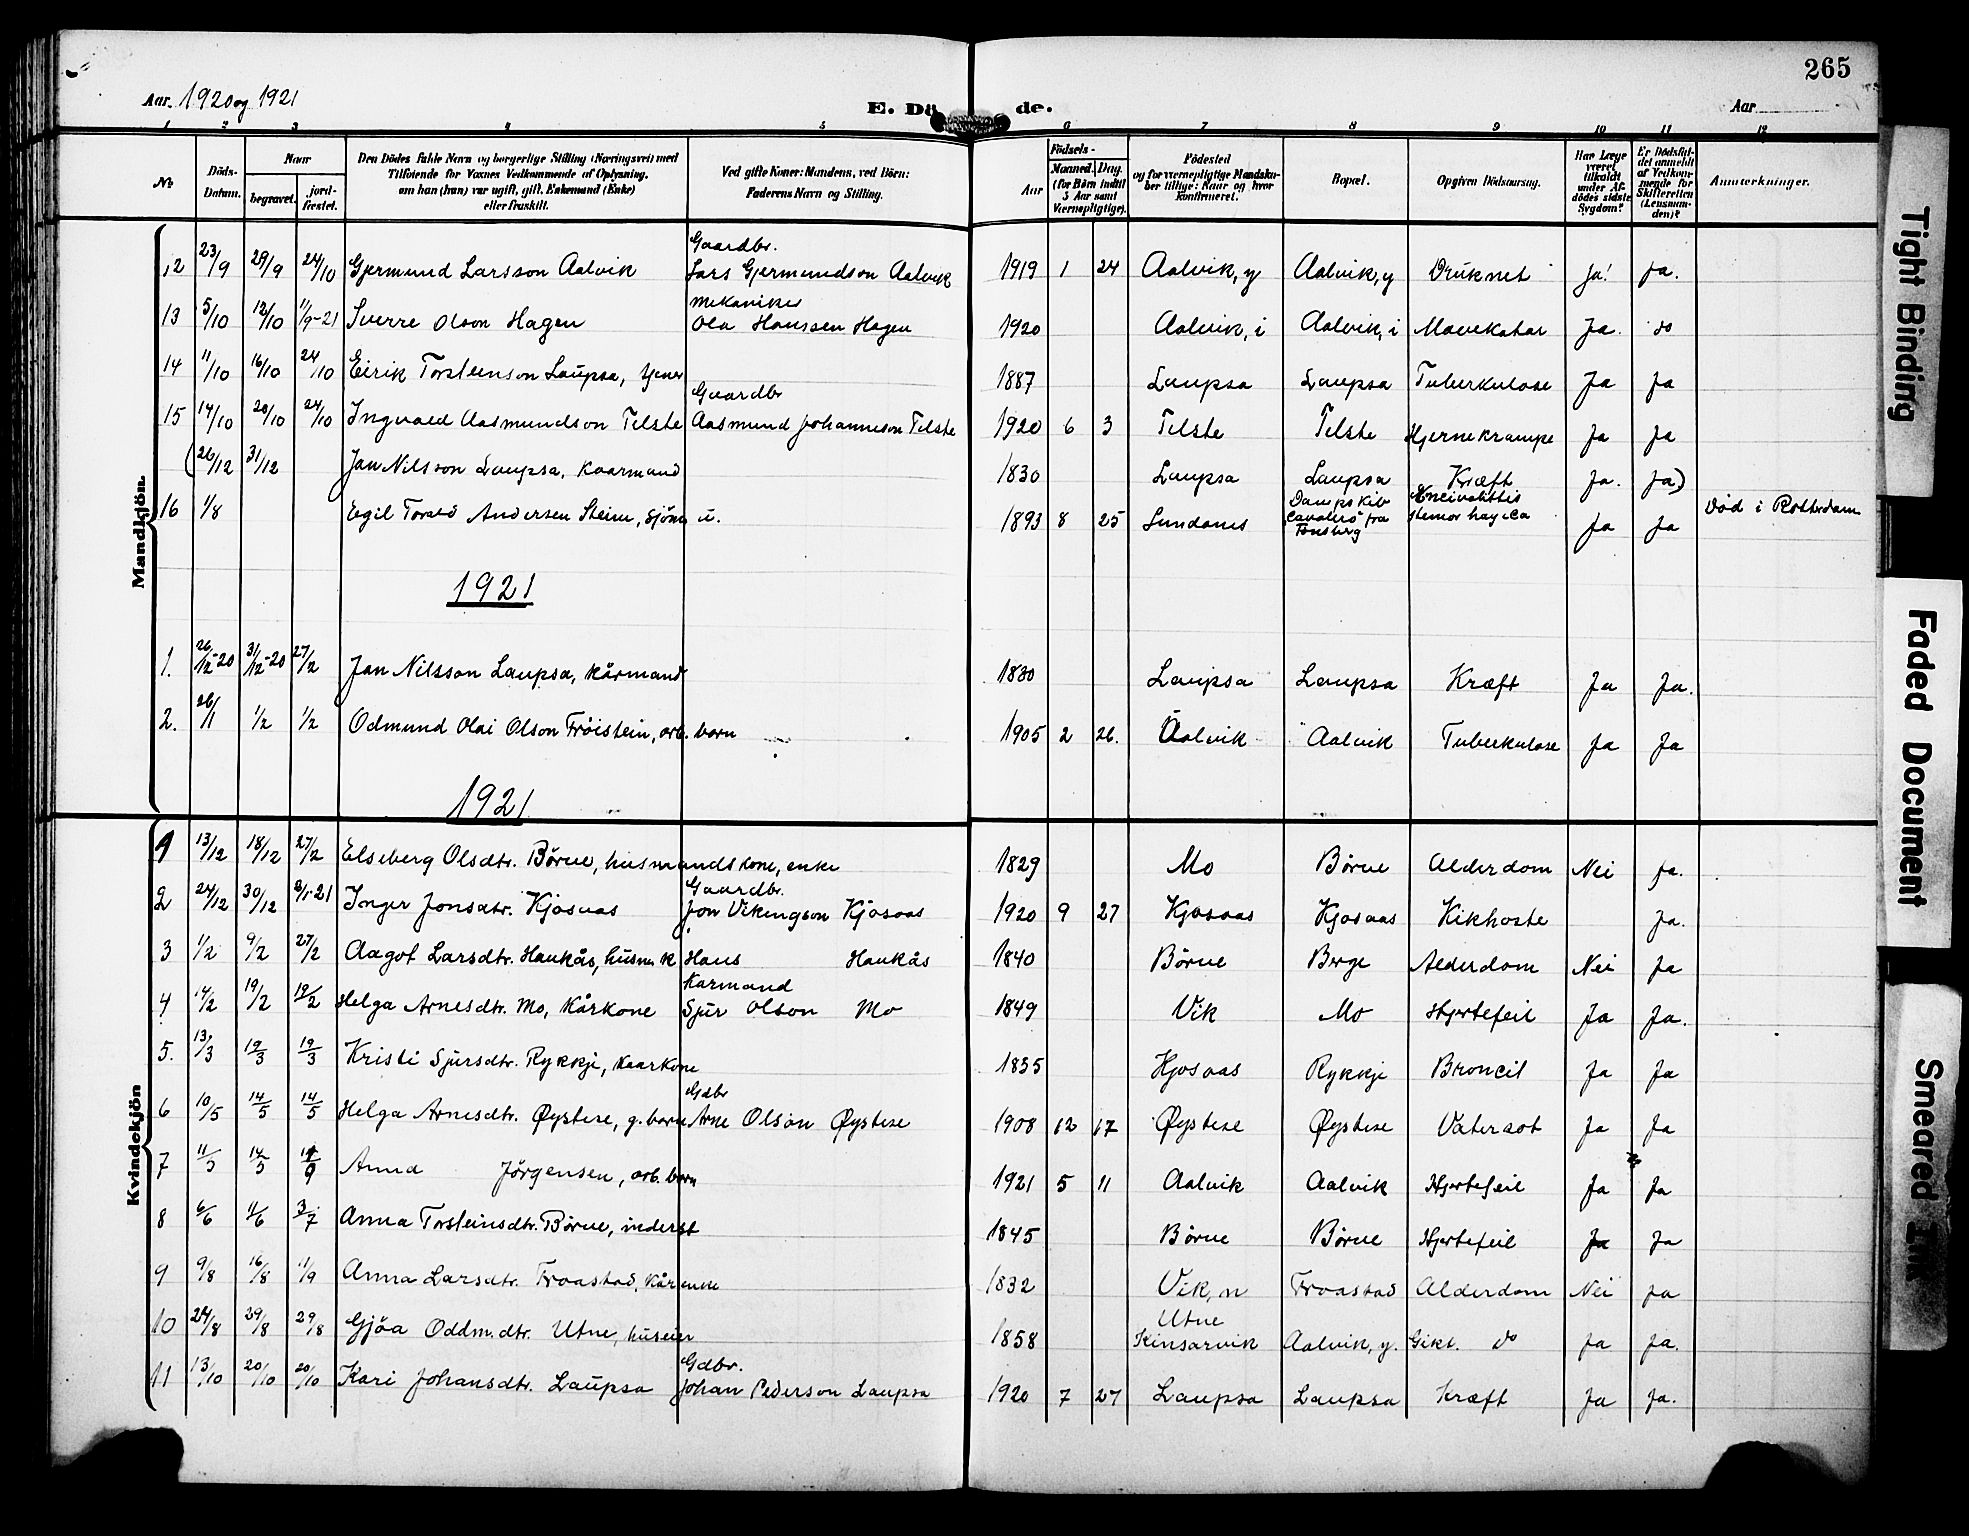 265
Aar. 1920 og 1921
E. Dö de.
Aar
1 2 3 4 5 6 7 8 9 10 11 12
No
Döds-Datum.
Naar
begravet.
jord-fæstet.
Den Dödes fulde Navn og borgerlige Stilling (Næringsvei) med
Tilföiende for Voxnes Vedkommende af Oplysning.
om han (hun) var ugift, gift, Enkemand (Enke)
eller fraskilt.
Ved gifte Koner: Mandens, ved Börn:
Faderens Navn og Stilling.
Födsels-
Aar
Maaned. Dag.
(for Börn indtil
5 Aar samt
Værnepligtige).
Födested
og for værnepligtige Mandska-
ber tillige: Naar og hvor
konfirmeret.
Bopæl.
Opgiven Dödsaarsag.
Har Læge
været
tilkaldt
under Af-
dödes sidste
Sygdom?
Er Dödsfal-
det anmeldt
af Vedkom-
mende for
Skifteretten
(Lensman-
den)?
Anmærkninger.
Mandkjön.
Gaardbr.
12 23/9 29/9 24/10 Gjermund Larsson Aalvik Lars Gjermundson Aalvik 1919 1 24 Aalvik, y Aalvik, y Druknet Ja! Ja.
Mekaniker
13 5/10 12/10 11/9-21 Sverre Olson Hagen Ola Hanssen Hagen 1920 Aalvik, i Aalvik, i Mavekatar Ja. do
14 11/10 16/10 24/10 Eirik Torsteinson Laupsa, 1887 Laupsa Laupsa Tuberkulose Ja Ja
Gaardbr
15 14/10 20/10 24/10 Ingvald Aasmundson Telste Aasmund Johanneson Telste 1920 6 3 Telste Telste Hjernekrampe Ja Ja
(26/12 31/12 Jan Nilsson Laupsa, Kaarmand 1830 Laupsa Laupsa Kræft Ja. Ja.)
16 1/8 Egil Torald Andersen Stein, Sjöm. u. 1893 8 25 Sundanes Dampskib Cavaliero fra Tønsberg Ja Ja Död i Rotterdam
1921
1. 26/12-20 31/12-20 27/2 Jan Nilsson Laupsa, kårmand 1830 Laupsa Laupsa Kræft Ja Ja.
2. 26/1 1/2 1/2 Odmund Olai Olson Fröistein, arb. barn 1905 2 26. Aalvik Aalvik Tuberkulose Ja Ja
1921
Kvindekjön
1 13/12 18/12 27/2 Elseberg Olsdtr. Börve, husmandskone, enke 1829 Mo Börve Alderdom Nei Ja.
Gaardbr.
2 24/12 30/12 2/1-21 Inger Jonsdtr. Kjosaas Jon Vikingson Kjosaas 1920 9 27 Kjosaas Kjosaas Kikhoste Ja.
3 1/2 9/2 27/2 Aagot Larsdtr. Haukås, husm. k Hans Haukås 1840 Börve Berge Alderdom Nei Ja
Karmand
4 14/2 19/2 19/2 Helga Arnesdtr. Mo, Kårkone Sjur Olson Mo 1849 Vik Mo Hjertefeil Ja Ja.
5. 13/3 19/3 19/3 Kristi Sjursdtr. Rykkje, kaarkone 1835 Kjosaas Rykkje Broncit Ja Ja
Gdbr
6 10/5 14/5 14/5 Helga Arnesdtr. Øystese, g. barn Arne Olson Øystese 1908 12 17 Øystese Øystese Vatersot Ja Ja
7 11/5 14/5 11/9 Anna Jörgensen, arb. barn 1921 5 11 Aalvik Aalvik Hjertefeil Ja Ja
8 6/6 11/6 3/7 Anna Torsteinsdtr. Börve, inderst 1845 Börve Börve Hjertefeil Ja Ja
9 9/8 16/8 11/9 Anna Larsdtr. Froastad, Kårenke 1832 Vik, n Froastad Alderdom Nei Ja
Utne
10 24/8 29/8 29/8 Gjöa Oddm.dtr. Utne, huseier 1858 Kinsarvik Aalvik, y. Gikt. do Ja Ja.
Gdbr.
11 13/10 20/10 20/10 Kari Johansdtr. Laupsa Johan Pederson Laupsa 1920 7 27 Laupsa Laupsa Kræft Ja Ja.
Tight Binding
Faded Document
Smeared Ink